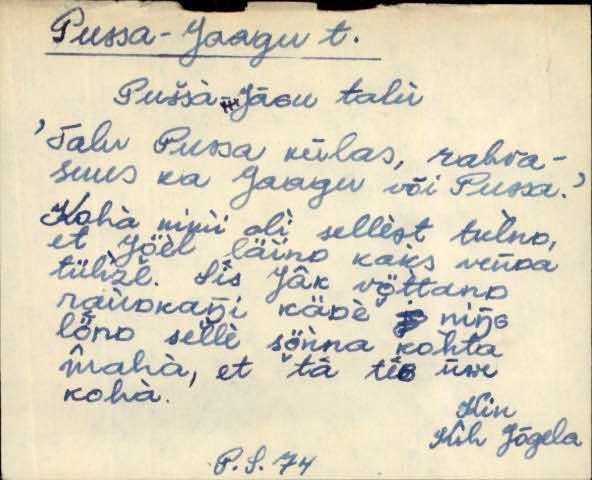 Pussa-Jaagu t.
Pušša Jāɢu talù
'Talu Pussa külas, rahva-
suus ka Jaagu või Pussa.'
Kohà nimi oli sellèst tùlnᴅ,
et jöèl läìnᴅ kaks venᴅa
tülìzè. Sis Jâk vöttanᴅ
raùᴅkaŋi kädè niŋɢ
lönᴅ sellè sönna kohta
mahà, et tä tēɢ
kohà.
Kin
Kih Jõgela
P.S. 74